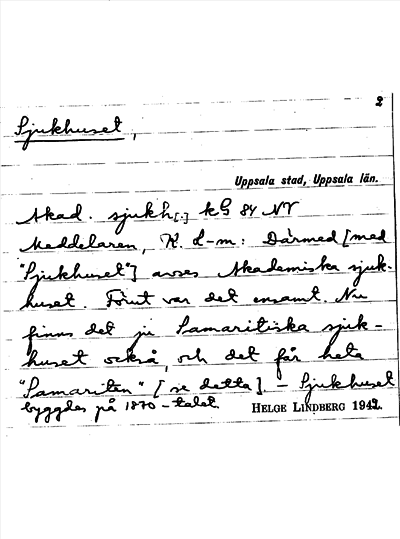 2
Sjukhuset,
Uppsala stad, Uppsala län.
Akad. sjukh[.] kG 84 NV
Meddelaren, K. L-m: Därmed [med
"Sjukhuset"] avses Akademiska sjuk-
huset. Förut var det ensamt. Nu
finns det ju Samaritiska sjuk-
huset också, och det får heta
"Samariten" [se detta]. - Sjukhuset
byggdes på 1870-talet.
HELGE LINDBERG 1942.